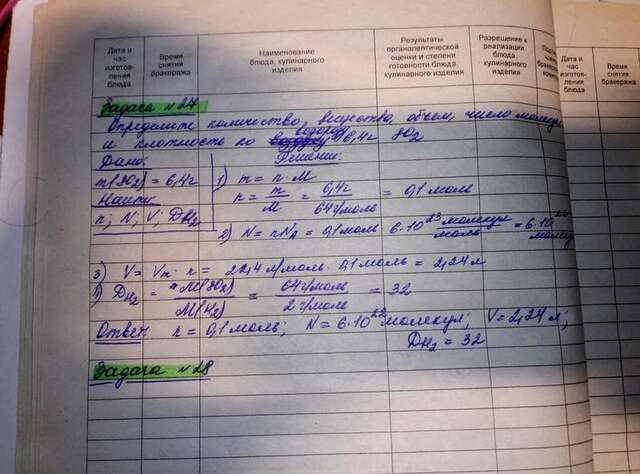 Дата и час изготовления блюда
Время снятия бракеража
Наименование блюда, кулинарного изделия
Результаты органолептической оценки и степени готовности блюда, кулинарного изделия
Разрешение к реализации блюда, кулинарного изделия
Дата и час изготов- ления блюда
Время снятия бракеража
Задача №27
Определите количество вещества, объем, число молекул
и плотность по водороду 6,4г SO2
Дано: Решение:
m(SO2) = 6,4г 1) m = n · M
Найти: n = m/M = 6,4г / 64г/моль = 0,1 моль
n; N; V; DH2
2) N = nNA = 0,1 моль · 6·10^23 молекул/моль = 6·10^22 молекул
3) V = Vm · n = 22,4 л/моль · 0,1 моль = 2,24 л
4) DH2 = M(SO2) / M(H2) = 64г/моль / 2 г/моль = 32
Ответ: n = 0,1 моль; N = 6·10^22 молекул; V = 2,24 л;
DH2 = 32
Задача №28